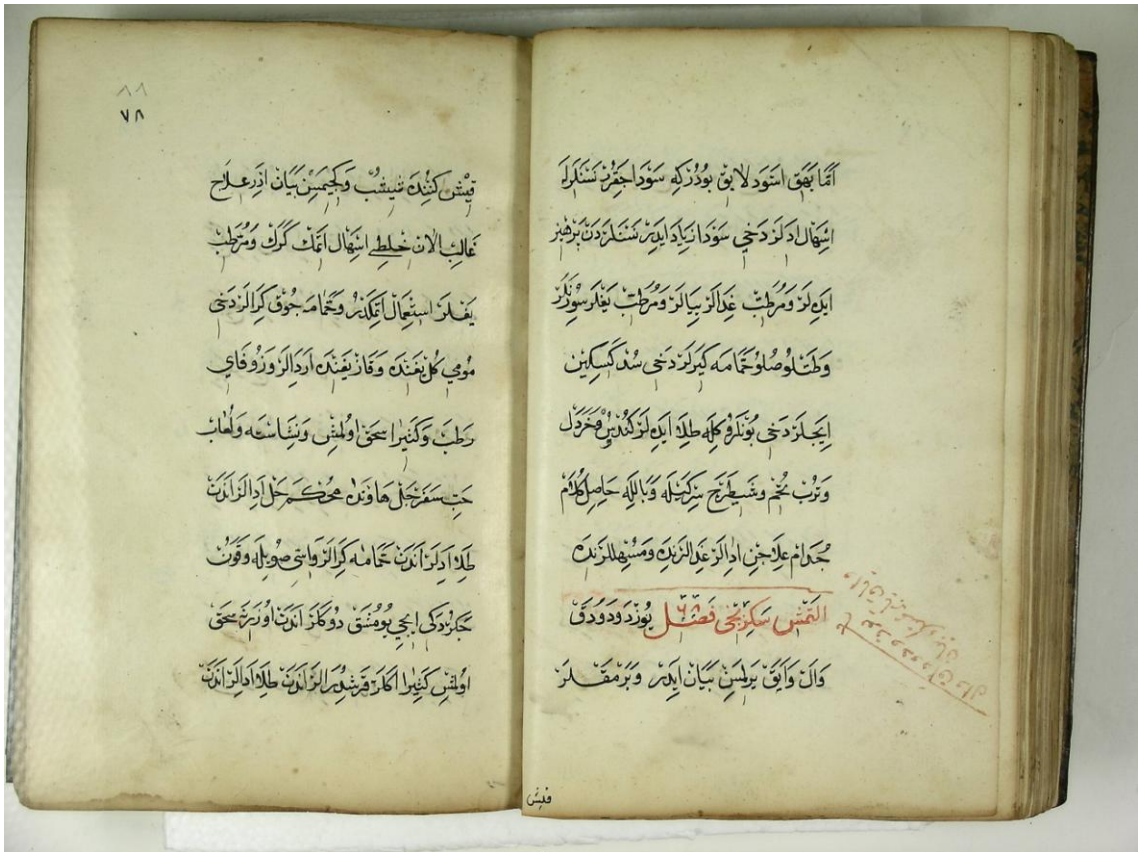 اَمَّا بَهَقِ اسْوَد لَايِقْ بُودُرْ كِه سَوْدَا جِقَرُنْ نَسْنَلَرلَه
اِسْهَال ادَلَرْ دَخِي سَوْدَا زِيَادَ ايدَنْ نَسْنَلَرْدَنْ بَرْهِيز
ايدَه لَرْ وَمُرَطِّبْ غِدَالَرْ يِيَالَرْ وَمُرَطِّبْ يَغْلَرْ سُورْنَلَرْ
وَطَتْلُو صُلُو حَمَّامَه كِيرَلَرْ دَخِي سُدْ كَسِكِين
اِيچَلَرْ دَخِي بُونْلَرُوكِلَه طِلَا ايدَه لَرْ كُنْدُسْ وخَرْدَل
وَتُرُبْ تُخْم وشَيْطَرَج سِرْكَيْلَه وَبَاللّٰه حَاصِل كَلَام
جُذَام عِلَاجِن ادَالَرْ غِدَالَرْنِدَه وَمُسْهِللَرنْدَه
التْمِشْ سَكِزِنْجِي فَصْل ٦٨ يُوزْدَه وَدُودَقْ
وَالْ وَايَقْ يَرِلْمَسِنْ بَيَانْ ايدَرْ وَبَرْمَقْلَرْ
قيش
٨٨
٧٨
قِيشْ كُنِنْدَه شِيشُبْ وَكِجِيمَسِنْ بَيَانْ ادَرْ عِلَاج
غَالِب اُلَانْ خِلْطِي اِسْهَال اتْمَكْ كَرَكْ وَمُرَطِّبْ
يَغْلَرْ اِسْتِعْمَال اتْمَكْدُرْ وحَمَّامَه چُوقْ كِرَالَرْ دَخِي
مُومِي كُلْ يَغِنْدَه وَقَازْ يَغِنْدَه اَرِدَالَرْ وَزُوفَاي
رَطْبْ وَكَثِيرَا سحق اُولمِش وَنِشَاسْتَه وَلُعَاب
حَبِّ سَفَرْجَل هَاوَنْدَه مُحْكَم حَل ادَالَرْ اَنْدَنْ
طِلَا ادَلَرْ اَنْدَنْ حَمَّامَه كِرَالَرْ وَاسِّي صُويلَه وقَوُنْ
چَكِرْدَكِي ايچِي يُومُشَقْ دُوكَلَرْ اَنْدَنْ اُوزَرِنَه سحق
اولمش كَثِيرَا اَكَلَرْ قَرِشْدُرَالَرْ اَنْدَنْ طِلَا ادَالَرْ اَنْدَنْ